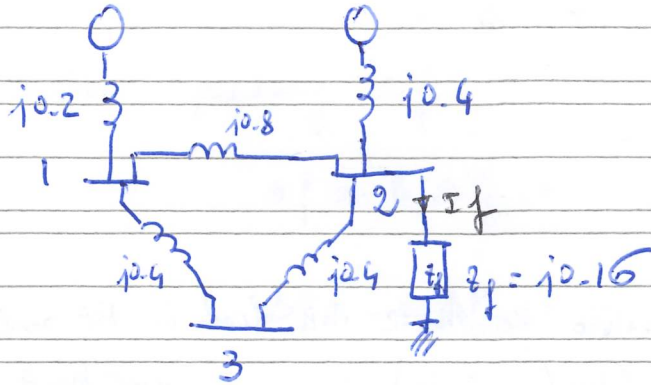 j0.2
j0.4
j0.8
1
2
If
j0.4
j0.4
zf
zf = j0.16
3